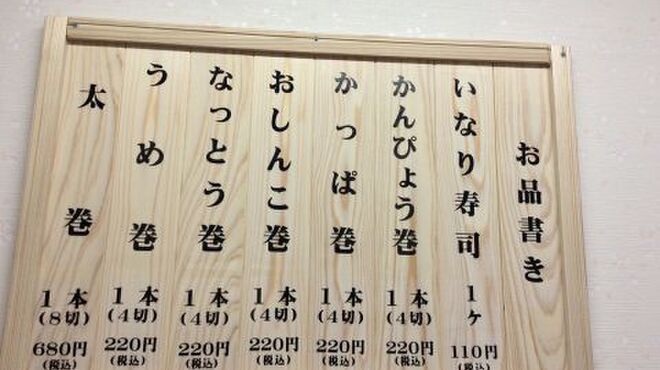 お品書き
いなり寿司 1ヶ 110円(税込)
かんぴょう巻 1本(4切) 220円(税込)
かっぱ巻 1本(4切) 220円(税込)
おしんこ巻 1本(4切) 220円(税込)
なっとう巻 1本(4切) 220円(税込)
うめ巻 1本(4切) 220円(税込)
太巻 1本(8切) 680円(税込)